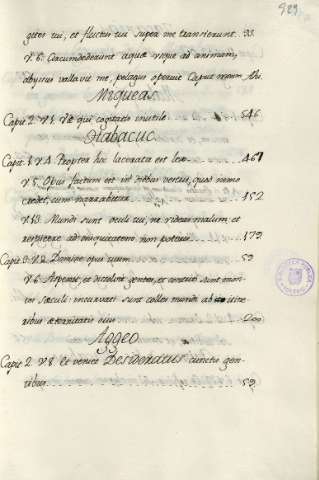 929
gites tui, et fluctus tui super me transierunt. 33.
V 6. Circundederunt me aquæ usque ad animam,
abyssus vallavit me, pelagus operuit Caput meum. Ibi.
Miqueas
Capit. 2 V 1. Væ qui cogitatis inutile. 546
Habacuc
Capit. 1 V 4. Propter hoc lacerata est lex. 467
V 5. Opus factum est in diebus vestris, quod nemo
credet, cum narrabitur. 152
V 13. Mundi sunt oculi tui, ne videas malum, et
respicere ad iniquitatem non poteris. 179
Capit. 3 V 2. Domine opus tuum. 59
V 6. Aspexit, et dissolvit gentes, et contriti sunt mon-
tes sæculi. incurvati sunt colles mundi ab itine-
ribus æternitatis eius. 200
Aggeo
Capit. 2 V 8. Et veniet Desideratus cunctis gen-
tibus. 59